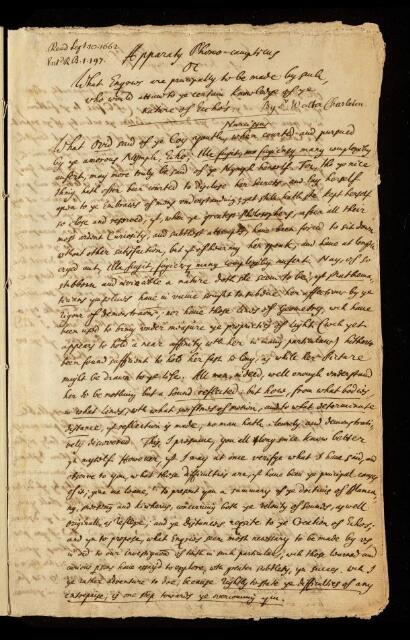 Read Sept 10. 1662.
Ent'd R.B. 1. 197.
Apparatus Phono-campticus
Or
What Enquirys are principally to be made by such,
who would attaine to ye certain knowledge of ye
nature of Echo's. By Dr Walter Charleton
Narcissus
What Ovid said of ye Coy youth, when courted and pursued
by ye amorous Nymph, Echo, Ille fugit, fugiens many
may more truly be said of ye Nymph herself. For, tho ye nice
thing hath often been courted to disclose her secrets, and lay herself
open to ye embraces of many understandings; yet she hath still kept herself
so close and reserved, yt, when ye greatest Philosophers, after all their
most ardent Curiosity, and subtilest attempts, have been forced to sit down
without other satisfaction, but yt of hearing her speak, and have at length
cryed out, Ille fugit, fugiens Nay, of so
stubborn and invincible a nature doth she seem to be, yt Mathema-
have in vaine sought to subdue her affections by ye
rigour of demonstrations; nor have those lines of Geometry, wch have
been used to bring under measure ye proprietys of Light (wch yet
appeares to hold a near affinity with her in many particulars) hitherto
been found sufficient to hold her fast so long, as while her Picture
might be drawn to ye life. All men, indeed, well enough understand
her to be nothing but a sound reflected; but how, from what bodies,
in what lines, wth what swiftness of motion, and to what determinate
distance, yt reflection is made; no man hath clearly and demonstrati-
vely discovered. This, I presume, you all know better
yn myself. However, yt I may at once verify what I have said, and
observe to you, what those difficulties are, yt have been ye principal
of give me leave, to present you a summary of ye doctrines of Blanca-
nus, and concerning both ye velocity of Sounds, as well
originals, as Reflexe; and ye distances requisite to ye Creation of Echos;
and yn to propose, what Enquirys seem most necessary to be made by us
in order to our investigation of truth in such particulars, wch those learned and
curious men have essay'd to explore, wth greater subtilty, yn success. wch I
ye rather adventure to doe, because rightly to state ye difficulties of any
enterprise, is one step towards ye overcoming ym.